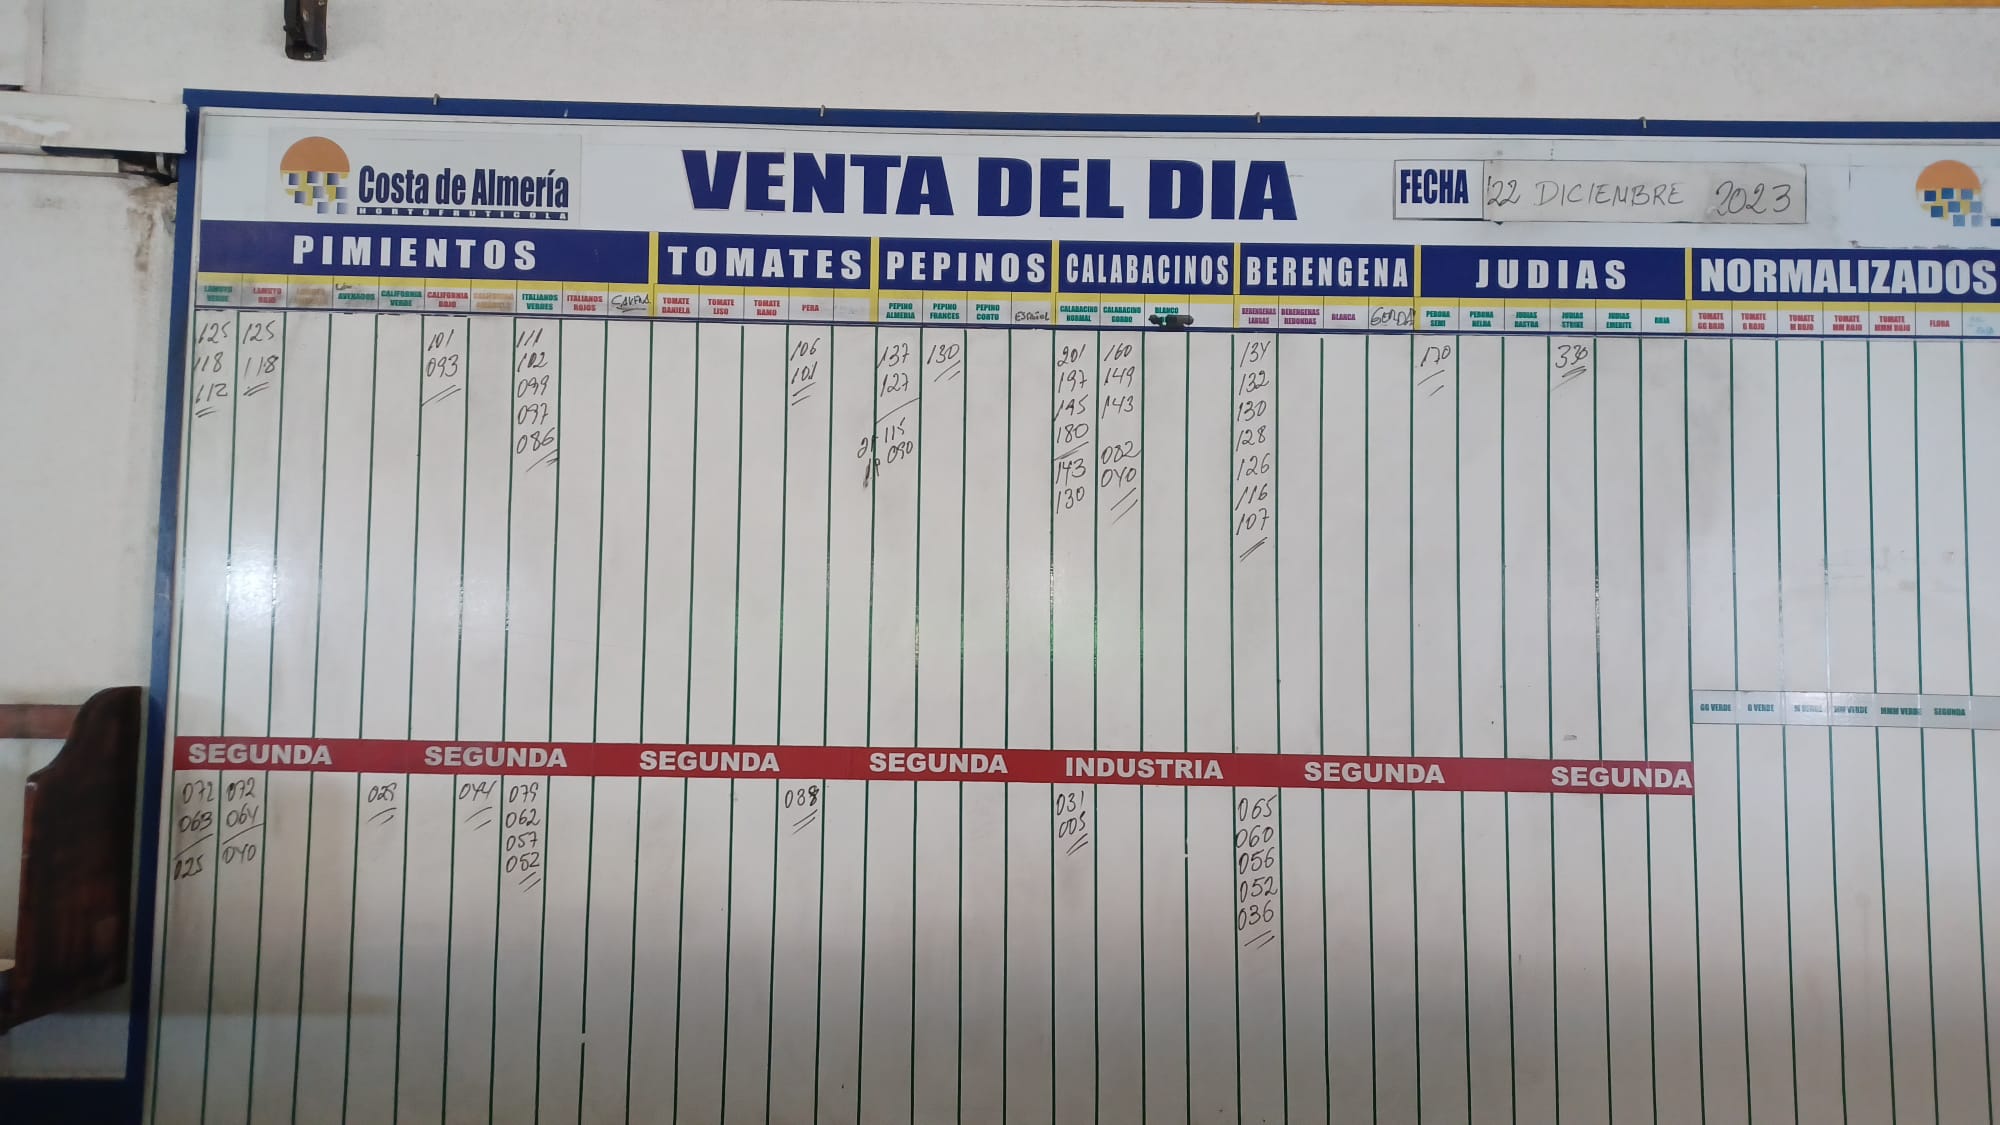 Costa de Almería
HORTOFRUTICOLA
VENTA DEL DIA
FECHA 22 DICIEMBRE 2023
PIMIENTOS TOMATES PEPINOS CALABACINOS BERENGENA JUDIAS NORMALIZADOS
LAMUYO VERDE
LAMUYO ROJO
ASVENADOS
CALIFORNIA VERDE
CALIFORNIA ROJO
ITALIANOS VERDES
ITALIANOS ROJOS
TOMATE DANIELA
TOMATE LISO
TOMATE RAMO
PERA
PEPINO ALMERIA
PEPINO FRANCES
PEPINO CORTO
ESPAÑOL
CALABACINO NORMAL
CALABACINO GORDO
BLANCO
BERENGENAS LARGAS
BERENGENAS REDONDAS
BLANCA
PERONA SEMI
PERONA HELDA
JUDIAS RASTRA
JUDIAS STRIKE
JUDIAS EMERITE
ROJA
TOMATE GG ROJO
TOMATE G ROJO
TOMATE M ROJO
TOMATE MM ROJO
TOMATE MMM ROJO
FLORA
125 125 101 111 106 137 130 201 160 134 170 330
118 118 093 102 101 127 197 149 132
112 099 195 143 130
097 115 180 128
086 090 143 040 126
130 116
107
GG VERDE G VERDE M VERDE MM VERDE MMM VERDE SEGUNDA
SEGUNDA SEGUNDA SEGUNDA SEGUNDA INDUSTRIA SEGUNDA SEGUNDA
072 072 029 044 079 088 031 065
063 064 062 005 060
025 040 057 056
052 052
036